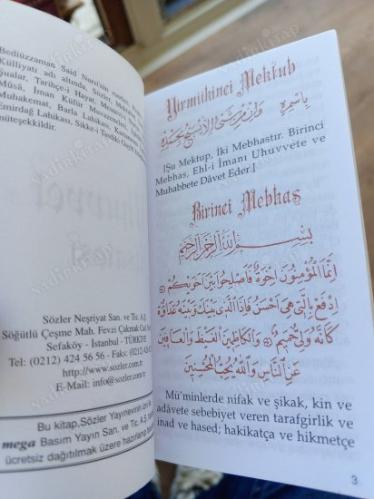 Bediüzzaman Said Nursî'nin
Külliyatı adı altında, Sözler, Mektubat,
Şualar, Tarihçe-i Hayat, Mesnevî
Mûsâ, İman Küfür Muvazeneleri,
Muhakemat, Barla Lahikası, Kastamonu
Emirdağ Lahikası, Sikke-i Tasdiki Gaybî
müteşekkildir.
Sözler Neşriyat San. ve Tic. A.Ş.
Söğütlü Çeşme Mah. Fevzi Çakmak Cad.
Sefaköy - İstanbul - TÜRKİYE
Tel: (0212) 424 56 56 - Fax: (0212)
http://www.sozler.com.tr
E-Mail: info@sozler.com.tr
Bu kitap, Sözler Yayınevinin izni ile
mega Basım Yayın San. ve Tic. A.Ş.
ücretsiz dağıtılmak üzere hazırlanmıştır
Yirmiikinci Mektub
بِاسْمِهِ وَاِنْ مِنْ شَىْءٍ اِلاَّ يُسَبِّحُ بِحَمْدِهِ
[Şu Mektup, İki Mebhastır. Birinci
Mebhas, Ehl-i İmanı Uhuvvete ve
Muhabbete Dâvet Eder.]
Birinci Mebhas
بِسْمِ اللّٰهِ الرَّحْمٰنِ الرَّحِيمِ
اِنَّمَا الْمُؤْمِنُونَ اِخْوَةٌ فَاَصْلِحُوا بَيْنَ اَخَوَيْكُمْ ۞
اِدْفَعْ بِالَّتِى هِىَ اَحْسَنُ فَاِذَا الَّذِى بَيْنَكَ وَبَيْنَهُ عَدَاوَةٌ
كَاَنَّهُ وَلِىٌّ حَمِيمٌ ۞ وَالْكَاظِمِينَ الْغَيْظَ وَالْعَافِينَ
عَنِ النَّاسِ وَاللّٰهُ يُحِبُّ الْمُحْسِنِينَ
Mü'minlerde nifak ve şikak, kin ve
adâvete sebebiyet veren tarafgirlik ve
inad ve hased; hakikatça ve hikmetçe
3